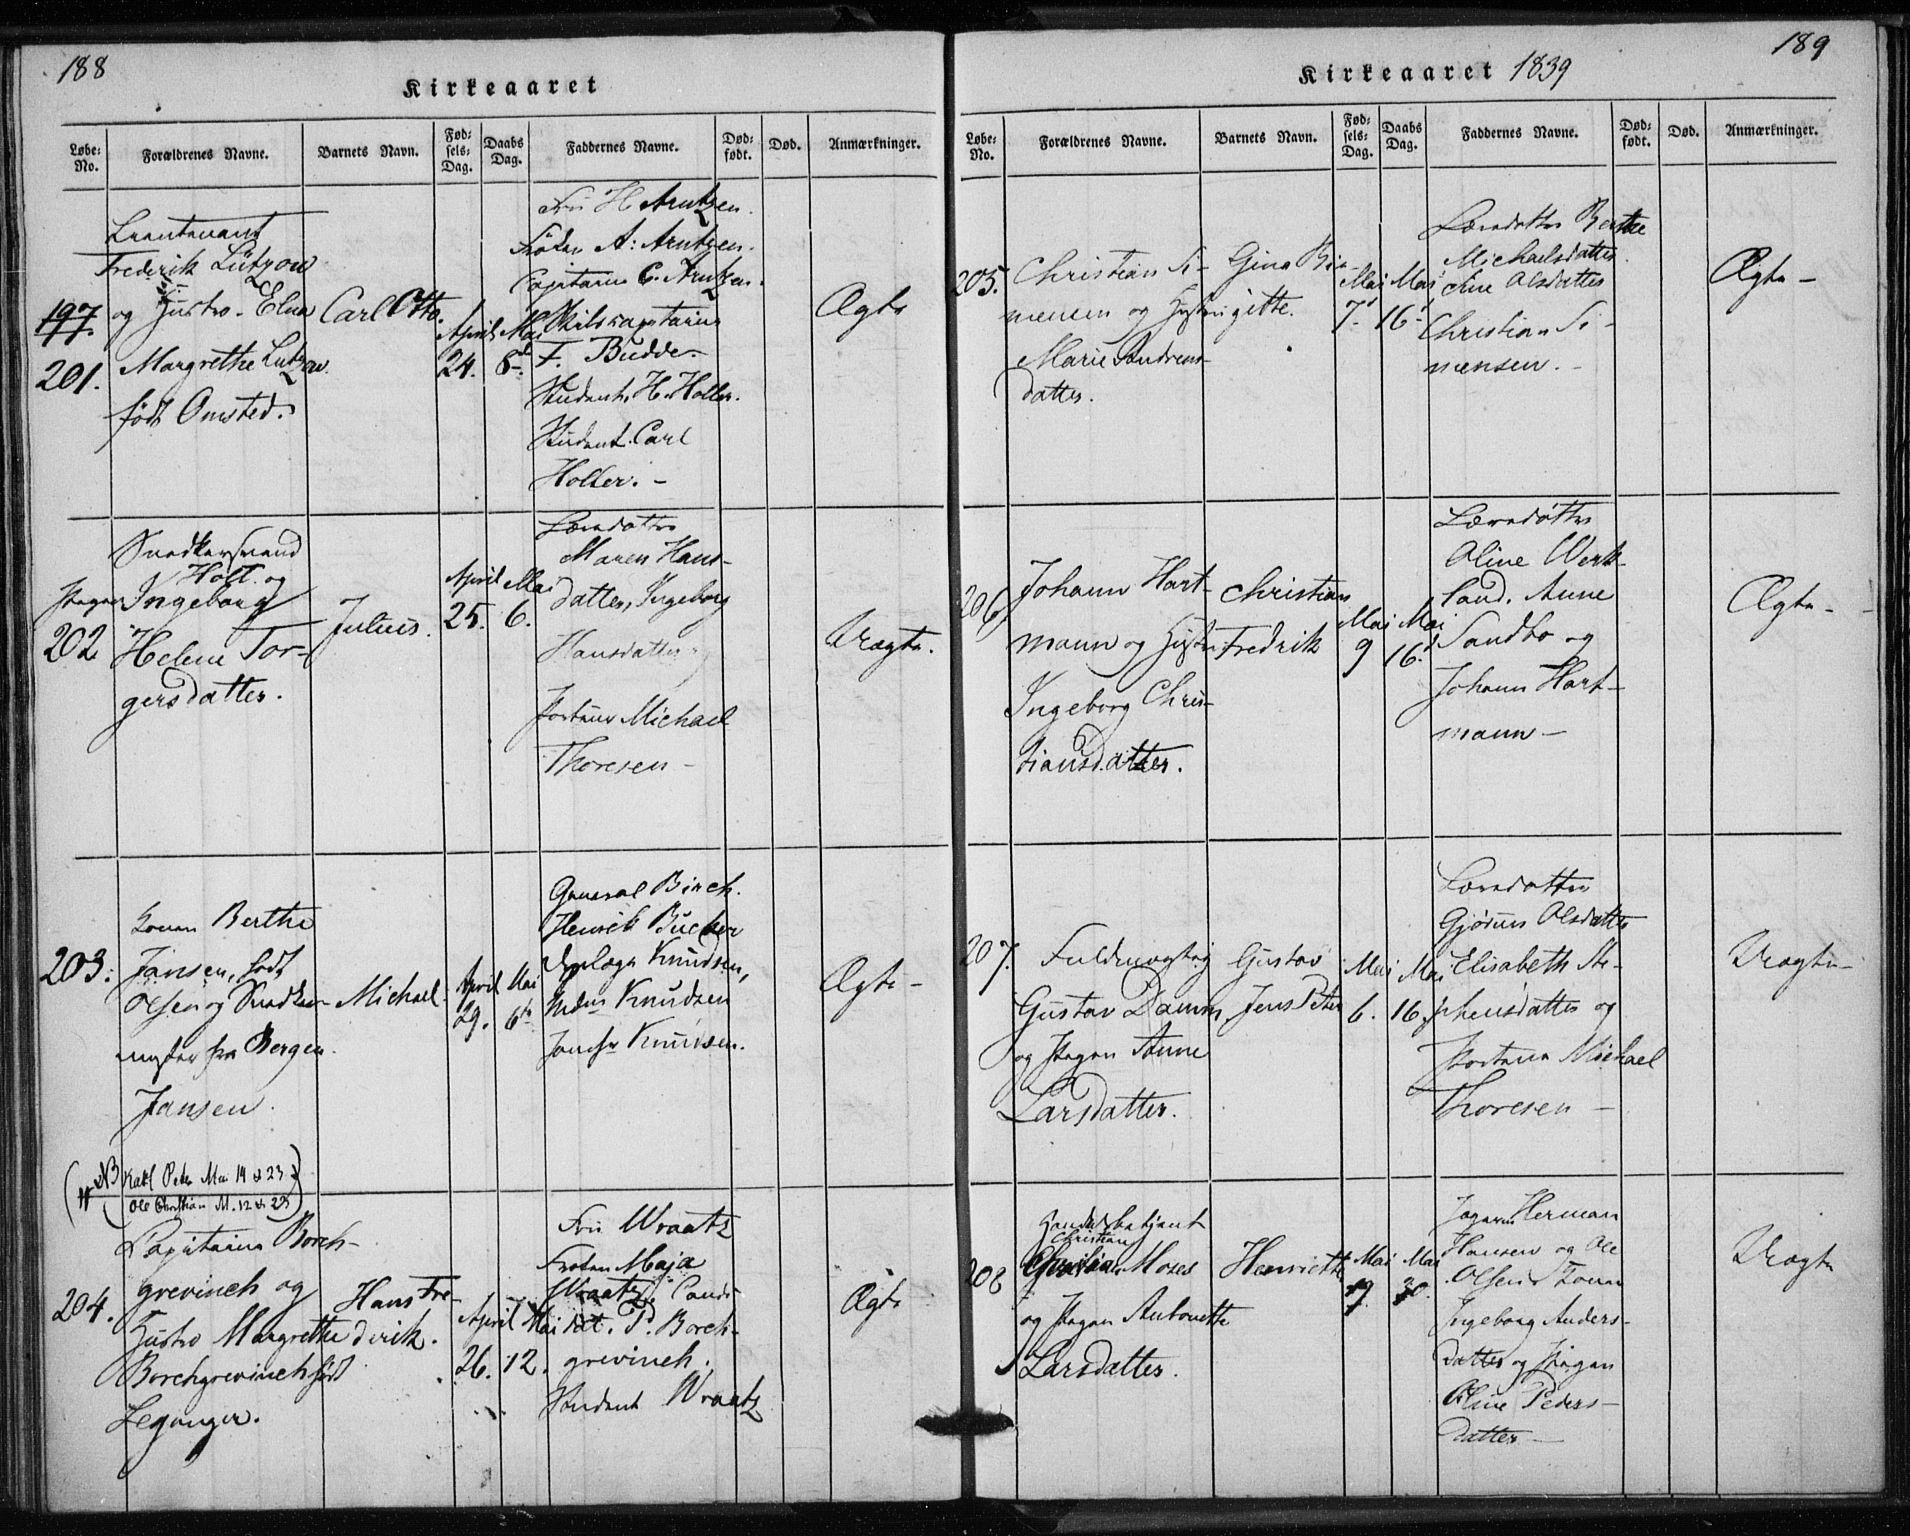 188
Kirkeaaret
Løbe-No. Forældrenes Navne. Barnets Navn. Fødsels-Dag. Daabs Dag. Faddernes Navne. Dødfødt. Død. Anmærkninger.
197.
201.
Lieutenant
Frederik Lützow
og Hustro Elna
Margrethe Lutzow
født Omsted.
Carl Otto.
April
24.
Mai
8de
Fru H Arntzen.
Frøken A: Arntzen.
Capitaine C. Arntzen.
Skibscapitaine
F. Budde.
Student H. Holter.
Student Carl
Holter. –
Ægte
202
Snedkersvend
Holt. og
Pigen Ingeborg
Helene Tor-
gersdatter.
Julius.
April
25.
Mai
6.
Læredøttre
Maren Hans-
datter, Ingeborg
Hansdatter
Portner Michael
Thoresen –
Uægte.
203.
Konen Berthe
Jansen, født
Olsen og Snedker-
mester fra Bergen
Jansen.
Michael
April
29.
Mai
6te
General Birch.
Henrik Bucher
Knudsen,
Mdm Knudsen
Jomfr Knudsen.
Ægte –
NB Karl Peter Mai 14 & 23
Ole Christian M. 12 & 23
204.
Capitaine Borch-
grevinch og
Hustro Margrethe
Borchgrevinch født
Leganger.
Hans Fre-
derik.
April
26.
Mai
12.
Fru Wraatz
Frøken Maja
Wraatz, Candi-
dat. P. Borch-
grevinch.
Student Wraatz
Ægte
189
Kirkeaaret 1839
Løbe-No. Forældrenes Navne. Barnets Navn. Fødsels-Dag. Daabs Dag. Faddernes Navne. Dødfødt. Død. Anmærkninger.
205.
Christian Si-
mensen og Hustru
Marie Andreas-
datter.
Gina Bir-
gitte.
Mai
7.
Mai
16.
Læredøttre Berthe
Michaelsdatter.
Ane Olsdatter
Christian Si-
mensen. –
Ægte –
206.
Johann Hart-
mann og Hustru
Ingeborg Chris-
tiansdatter.
Christian
Fredrik
Mai
9
Mai
16.
Læredøttre
Oline Werk-
land, Anne
Sandbo og
Johann Hart-
mann –
Ægte –
207.
Fuldmægtig
Gustav Damm
og Pigen Anne
Larsdatter.
Gustav
Jens Peter
Mai
6.
Mai
16.
Læredøttre
Gjørun Olsdatter
Elisabeth Ste-
phensdatter og
Portner Michael
Thoresen –
Uægte –
208
Handelsbetjent
Christian
Moses
og Pigen Antonette
Larsdatter.
Henriette
Mai
Mai
Herman
Hansen og Ole
Olsen Konen
Ingeborg Anders-
datter og Pigen
Oline Peders-
datter –
Uægte